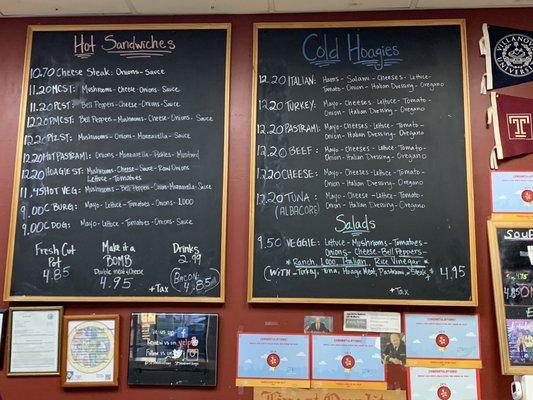 Hot Sandwiches
10.70 Cheese Steak: Onions - Sauce
11.20 MCST: Mushrooms - Cheese - Onions - Sauce
11.20 PCST: Bell Peppers - Cheese - Onions - Sauce
12.20 PMCST: Bell Peppers - Mushrooms - Cheese - Onions - Sauce
12.20 PIZST: Mushrooms - Onions - Mozzarella - Sauce
12.20 Hot Pastrami: Onions - Mozzarella - Pickles - Mustard
12.20 Hoagie St: Mushrooms - Cheese - Sauce - Raw Onions
Lettuce - Tomatoes
11.45 Hot Veg: Mushrooms - Bell Peppers - Onion - Mozzarella - Sauce
9.00 C Burg: Mayo - Lettuce - Tomatoes - Onions - 1,000
9.00 C Dog: Mayo - Lettuce - Tomatoes - Onions - Sauce
Fresh Cut
Pot
4.85
Make it a
BOMB
Double meat & Cheese
4.95
Drinks
2.99
Bacon
4.85
+Tax
Cold Hoagies
12.20 Italian: Hams - Salami - Cheeses - Lettuce
Tomato - Onion - Italian Dressing - Oregano
12.20 Turkey: Mayo - Cheeses - Lettuce - Tomato
Onion - Italian Dressing - Oregano
12.20 Pastrami: Mayo - Cheeses - Lettuce - Tomato
Onion - Italian Dressing - Oregano
12.20 Beef: Mayo - Cheeses - Lettuce - Tomato -
Onion - Italian Dressing - Oregano
12.20 Cheese: Mayo - Cheeses - Lettuce - Tomato -
Onion - Italian Dressing - Oregano
12.20 Tuna: Mayo - Cheeses - Lettuce - Tomato -
(Albacore) Onion - Italian Dressing - Oregano
Salads
9.50 Veggie: Lettuce - Mushrooms - Tomatoes -
Onions - Cheese - Bell Peppers -
* Ranch, 1,000 Italian, Rice Vinegar *
(With - Turkey, Tuna, Hoagie Meat, Pastrami, Steak) + 4.95
+Tax
VILLANOVA
T
Soup
yelp